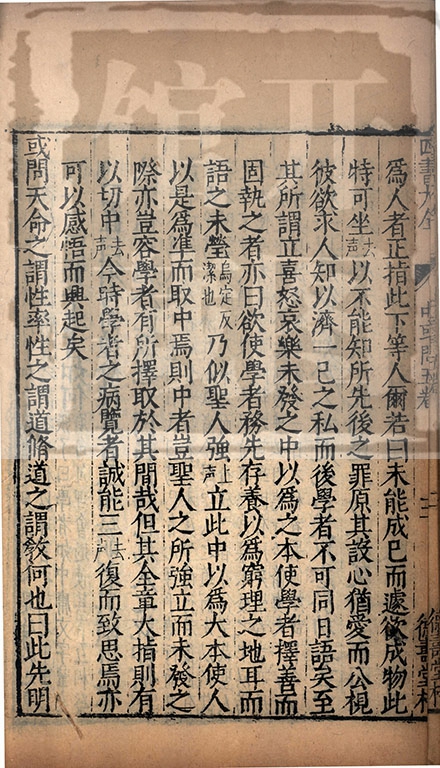 爲人者正指此下等人爾若曰未能成己而遽欲成物此
特可坐去聲以不能知所先後之罪原其設心猶愛而公視
彼欲求人知以濟一己之私而後學者不可同日語矣至
其所謂立喜怒哀樂未發之中以爲之本使學者擇善而
固執之者亦曰欲使學者務先存養以爲窮理之地耳而
語之未瑩烏定反潔也乃似聖人強上聲立此中以爲大本使人
以是爲準而取中焉則中者豈聖人之所強立而未發之
際亦豈容學者有所擇取於其間哉但其全章大指則有
以切中去聲今時學者之病覽者誠能三去聲復而致思焉亦
可以感悟而興起矣
或問天命之謂性率性之謂道脩道之謂敎何也曰此先明